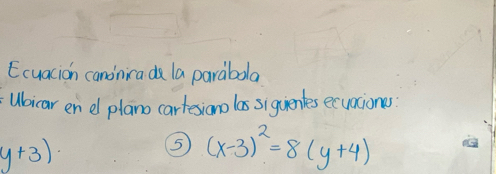 Ecuación canónica de la parábola
Ubicar en el plano cartesiano las siguientes ecuaciones:
y+3).
⑤ (x-3)² = 8(y+4)